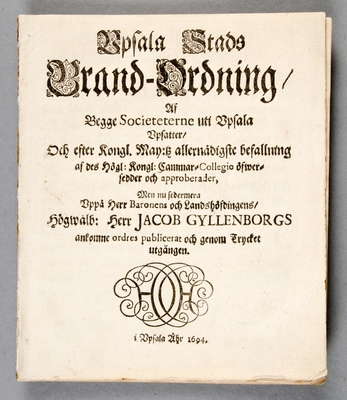 Upsala Stads
Brand-Ordning/
Af
Begge Societeterne uti Upsala
Upsatter/
Och efter Kongl. May:tz allernådigste befallning
af des Högl: Kongl: Cammar-Collegio öfwer-
sedder och approberader,
Men nu sedermera
Uppå Herr Baronens och Landshöfdingens/
Högwälb: Herr JACOB GYLLENBORGS
ankomne ordres publicerat och genom Trycket
utgången.
i. Upsala Åhr 1694.